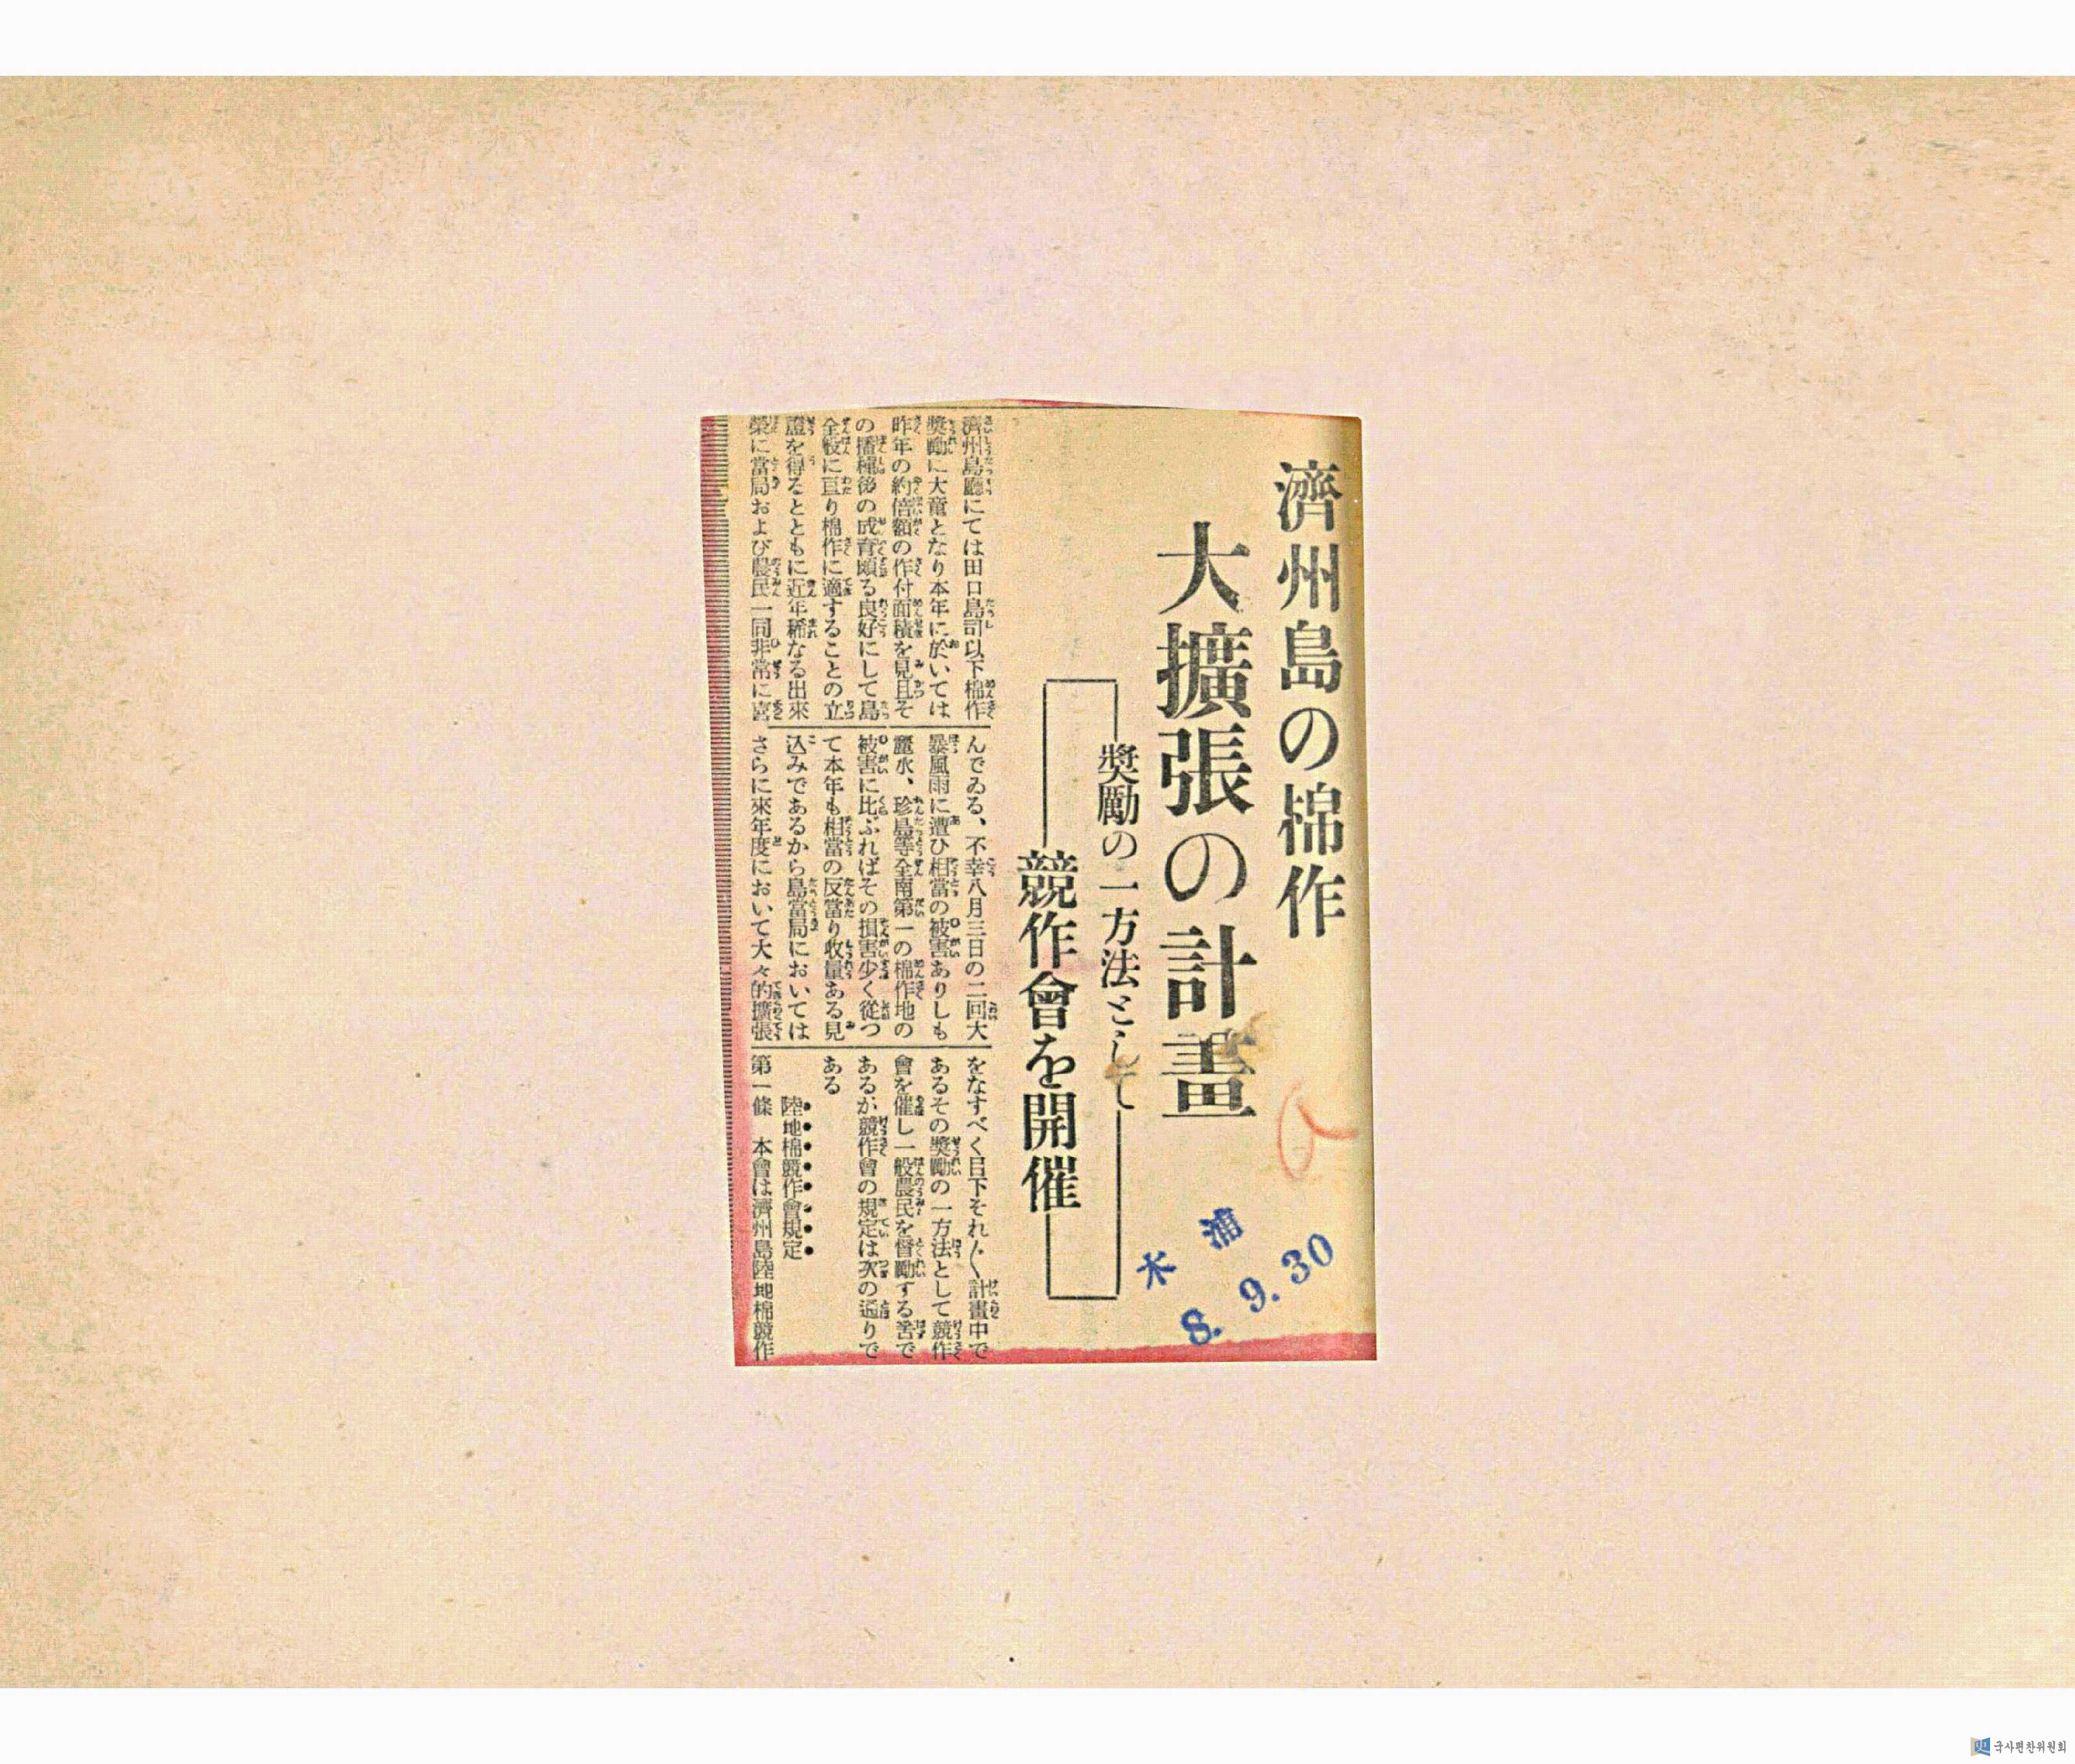 濟州島の棉作
大擴張の計畫
奬勵の一方法として
競作會を開催
濟州島廳にては田口島司以下棉作
奬勵に大童となり本年に於いては
昨年の約倍額の作付面積を見且そ
の播種後の成育頗る良好にして島
全般に亘り棉作に適することの立
證を得るとともに近年稀なる出來
榮に當局および農民一同非常に喜
んでゐる、不幸八月三日の二回大
暴風雨に遭ひ相當の被害ありしも
麗水、珍島等全南第一の棉作地の
被害に比ぶればその損害少く從つ
て本年も相當の反當り收量ある見
込みであるから島當局においては
さらに來年度において大々的擴張
をなすべく目下それ〳〵計畫中で
あるその奬勵の一方法として競作
會を催し一般農民を督勵する筈で
あるが競作會の規定は次の通りで
ある
陸地棉競作會規定
第一條 本會は濟州島陸地棉競作
木浦
8. 9. 30
국사편찬위원회